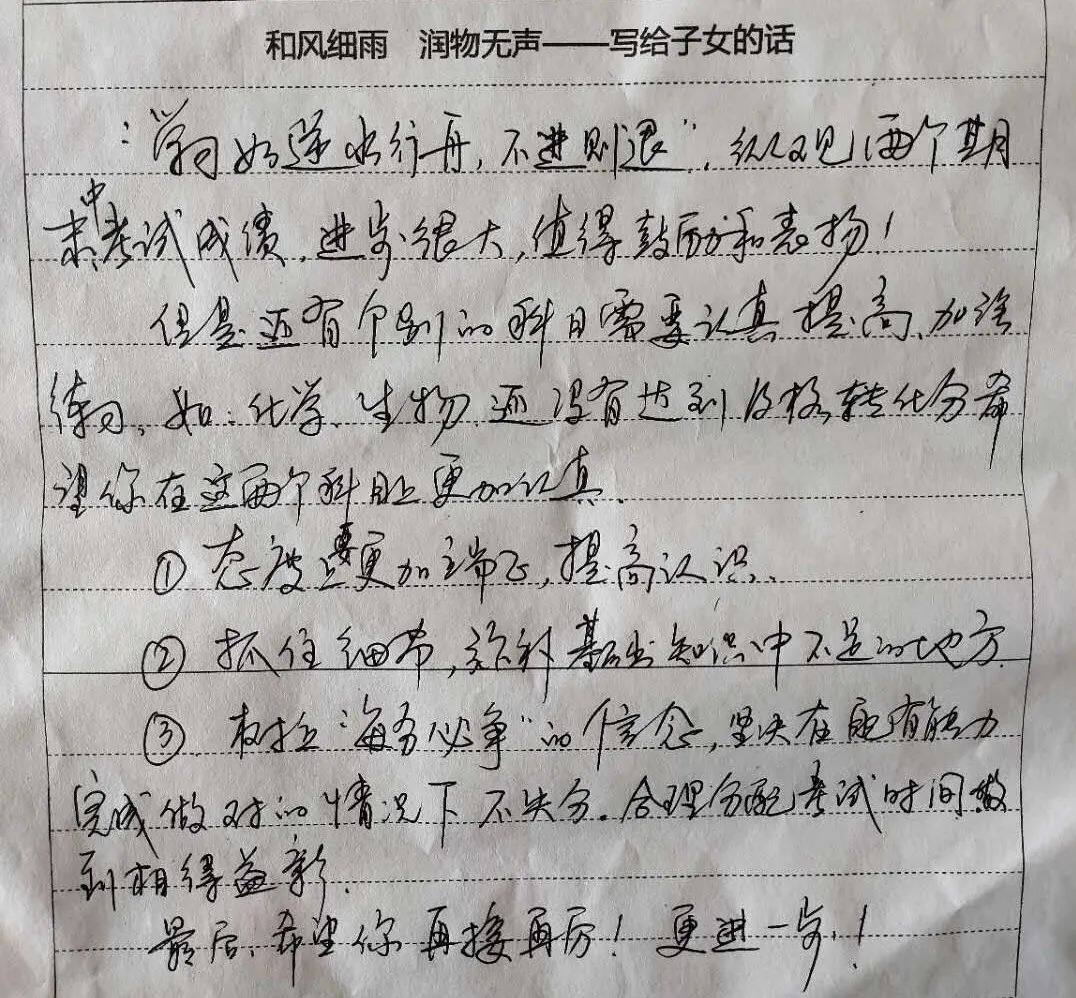 和风细雨 润物无声——写给子女的话
"学习如逆水行舟,不进则退",纵观两个期
中考试成绩,进步很大,值得鼓励和表扬!
但是还有个别的科目需要认真提高、加强
练习。如:化学、生物还没有达到及格转化分希
望你在这两个科目上更加认真。
①态度要更加端正,提高认识、
②抓住细节,弥补基础知识中不足的地方.
③.树立"每分必争"的信念,坚决在能有能力
完成做对的情况下不失分。合理分配考试时间做
到相得益彰.
最后、希望你再接再厉!更进一步!